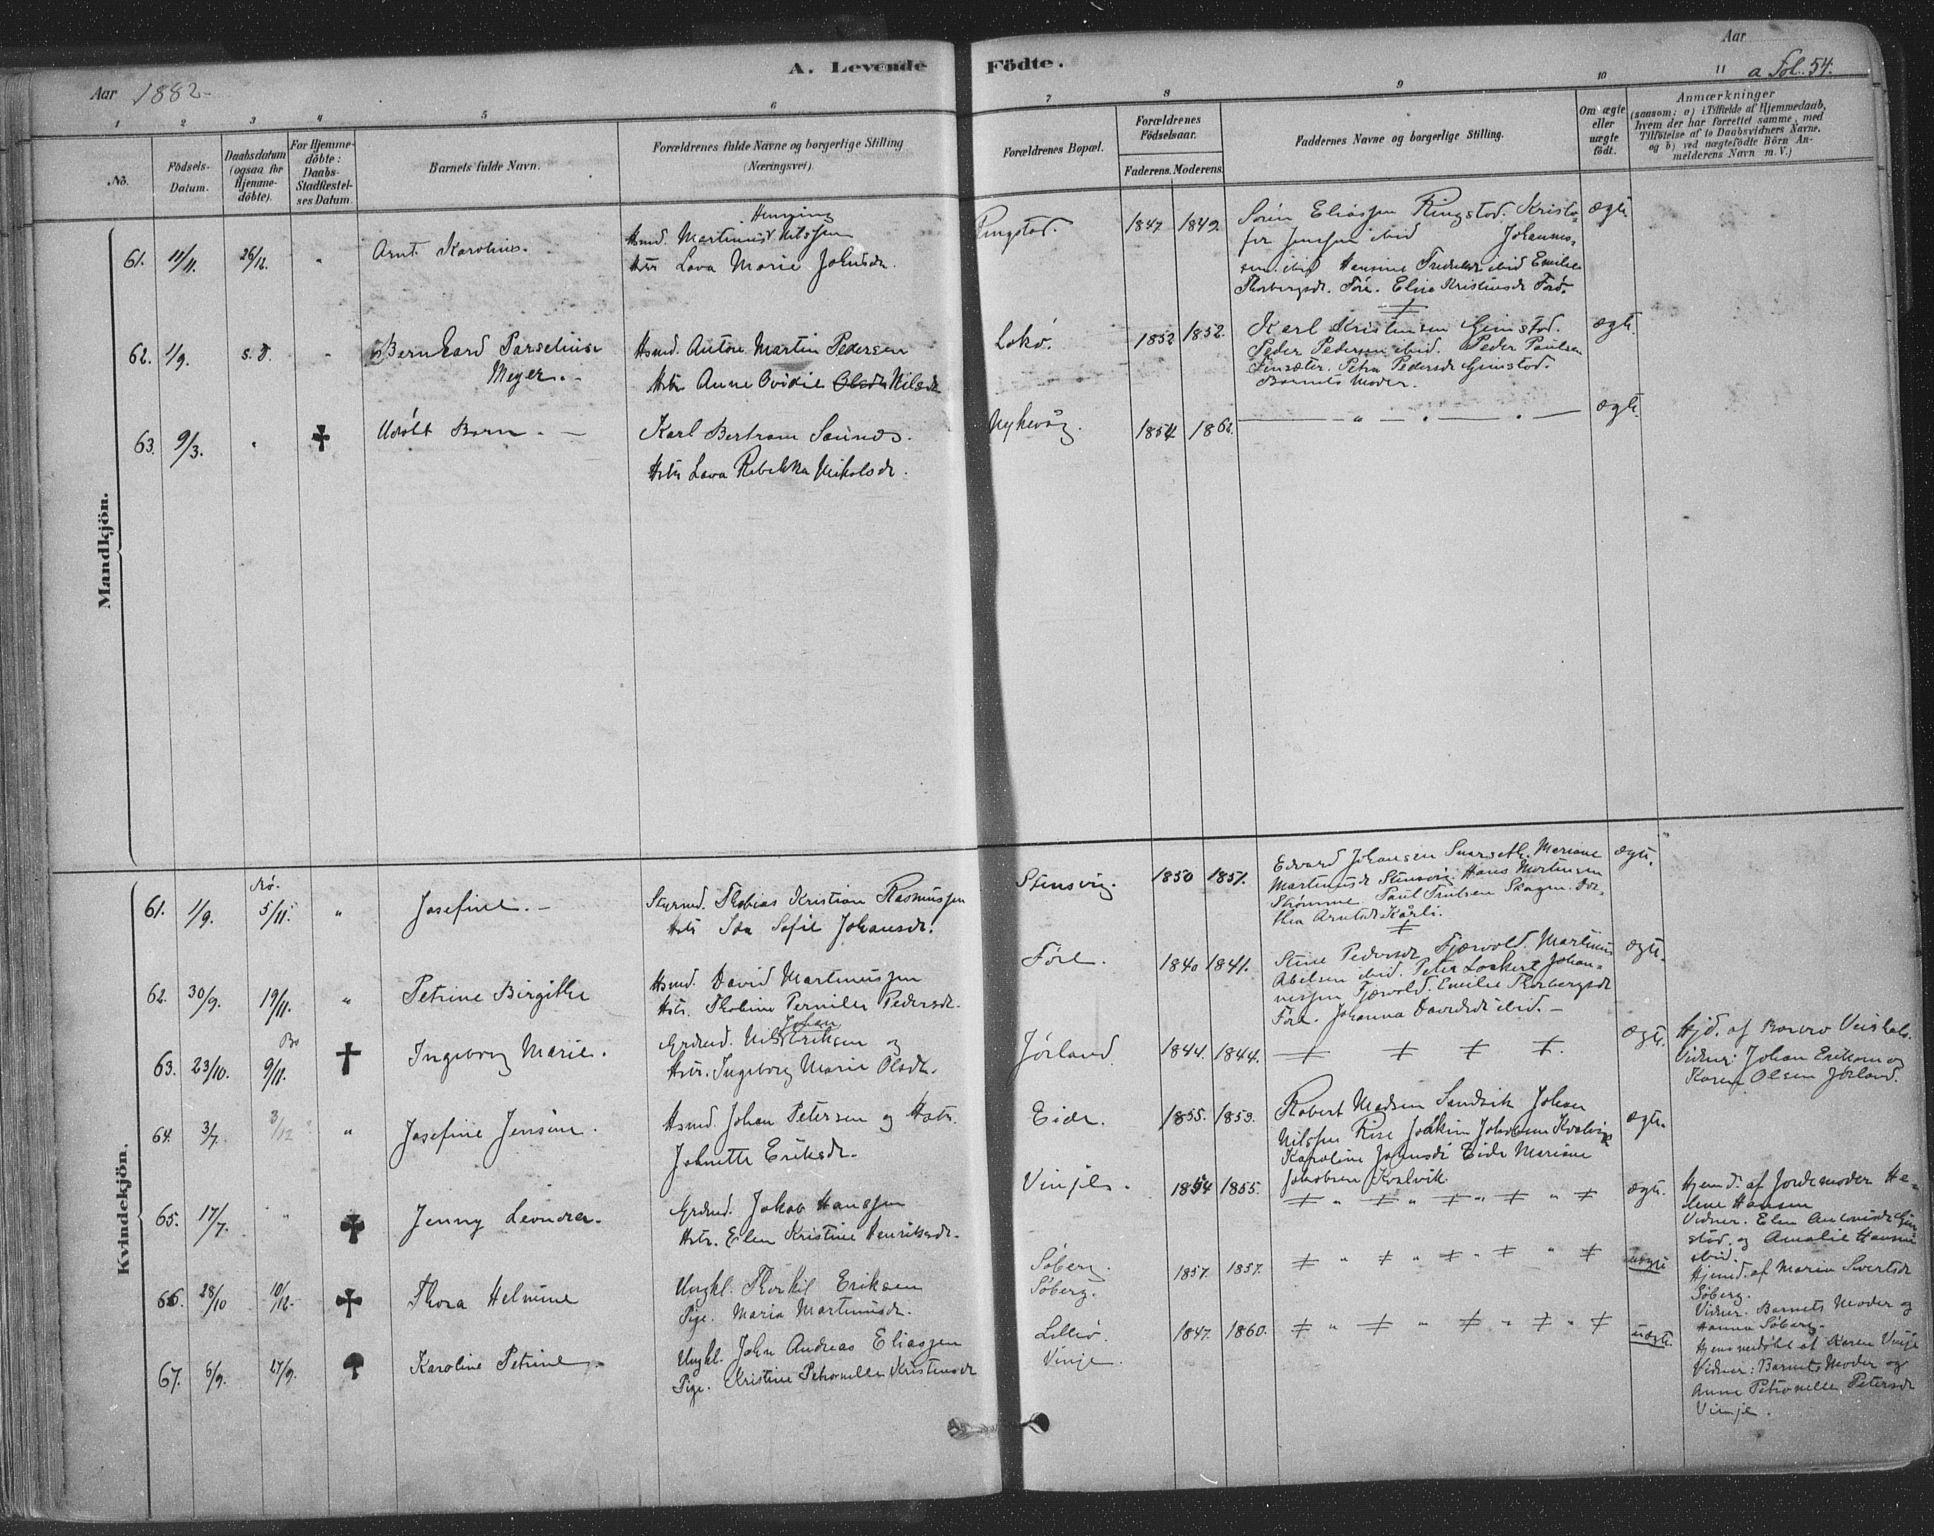 Aar 1882.
A. Levende Födte.
Aar
a Fol. 54.
1 2 3 4 5 6 7 8 9 10 11
No.
Födsels-Datum.
Daabsdatum (ogsaa for Hjemmedöbte).
For Hjemmedöbte: Daabs-Stadfæstelses Datum.
Barnets fulde Navn.
Forældrenes fulde Navne og borgerlige Stilling (Næringsvei).
Forældrenes Bopæl.
Forældrenes Födselsaar.
Faderens. Moderens.
Faddernes Navne og borgerlige Stilling.
Om ægte eller uægte födt.
Anmærkninger
(saasom: a) i Tilfælde af Hjemmedaab, hvem der har forrettet samme, med Tilföielse af to Daabsvidners Navne, og b) ved uægtefödte Börn Anmelderens Navn m. V.)
Mandkjön.
61. 11/11. 26/12. " Arnt Karolius.
Henning
Hsmd. Martinus Nilssen
Hstr Lava Marie Johnsdr.
Ringstad. 1847 1849.
Sören Eliassen Ringstad. Kristo-
fer Jenssen ibid Johannes-
sen ibid Hansine Fredriksd ibid Emilie
Thorbergsdr. Före. Elise Kristensdr Före.
ægte
62. 1/9. s. d. " Bernhard Parselius
Meyer.
Hsmd. Antore Martin Pedersen
Hstr Anne Ovidie Olsdr Nilsdr
1852 1852.
Karl Kristensen Gimstad.
Peder Pedersen ibid. Peder Paulsen
Finsæter. Petra Pedersdr Gimstad.
Barnets Moder.
ægte.
63. 9/3. " Udöbt Barn.
Karl Bertram
Hstr Lava Rebekka Nikolsdr.
Nykvåg. 1854 1862.
ægte.
Kvindekjön.
61. 1/9. 5/11. " Josefine.
Styrmd. Thobias Kristian Rasmussen
Hstr Ida Sofie Johansdr.
Stensvig. 1850 1851.
Edvard Johansen Snarseth. Mariane
Martinusdr Stensvig. Hans Mortensen
Strömme Paul Trulsen Skagen. Do-
thea Arntsdr Kårli.
ægte.
62. 30/9. 19/11. " Petrine Birgithe
Hsmd. David Martinussen
Hstr. Thobine Pernille Pedersdr.
Före. 1840 1841.
Stine Pedersdr Fjærvold. Martinus
Abelsen ibid. Peter Lockert Johan-
nessen Fjærvold. Emilie Thorbergsdr
Före. Johanna Davidsdr ibid.
ægte.
63. 23/10. 9/11. Ingeborg Marie.
Johan
Grdmd. Nils Eriksen og
Hstr. Ingeborg Marie Olsdr.
Jörland 1844. 1844.
ægte.
Hjd. af Barbro
Vidner: Johan Eriksen og
Karen Olsen Jörland.
64. 3/7. 3/12 " Josefine Jensine.
Hsmd. Johan Petersen og Hstr.
Johnette Eriksdr.
Eide. 1855. 1853.
Robert Madsen Sandvik Johan
Nilssen Rise Joakim Jakobsen Kvalvik
Karoline Johnsdr Eide Mariane
Jakobsen Kvalvik
ægte.
65. 17/7. " Jenny Leondra.
Grdmd. Jakob Hanssen
Hstr. Elen Kristine Henriksdr.
Vinje. 1854 1855.
ægte.
Hjemd. af Jordemoder He-
lene Hansen
Vidner. Elen Antonisdr Gim
stad. og Amalie Hansen
ibid.
66. 28/10 10/12. Thora Helmine
Ungkl. Thorkil Eriksen
Pige. Maria Martinusdr.
Söberg.
Söberg. 1857. 1857.
uægte
Hjemd. af Maria Sivertsdr
Söberg.
Vidner. Barnets Moder og
Hanna Söberg.
67. 6/9. 27/9. Karoline Petrine.
Ungkl. John Andreas Eliassen
Pige. Kristine Petronelle Kristensdr
Lillö.
Vinje. 1847. 1860.
uægte.
Hjemmedöbt af Karen Vinje
Vidner: Barnets Moder og
Anne Petronelle Petersdr
Vinje.